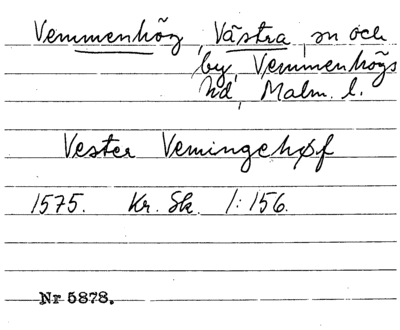 Vemmenhög, Västra, sn och
by, Vemmenhögs
hd, Malm. l.
Vester Vemingehøf
1575. Kr. Sk. 1:156.
Nr 5878.